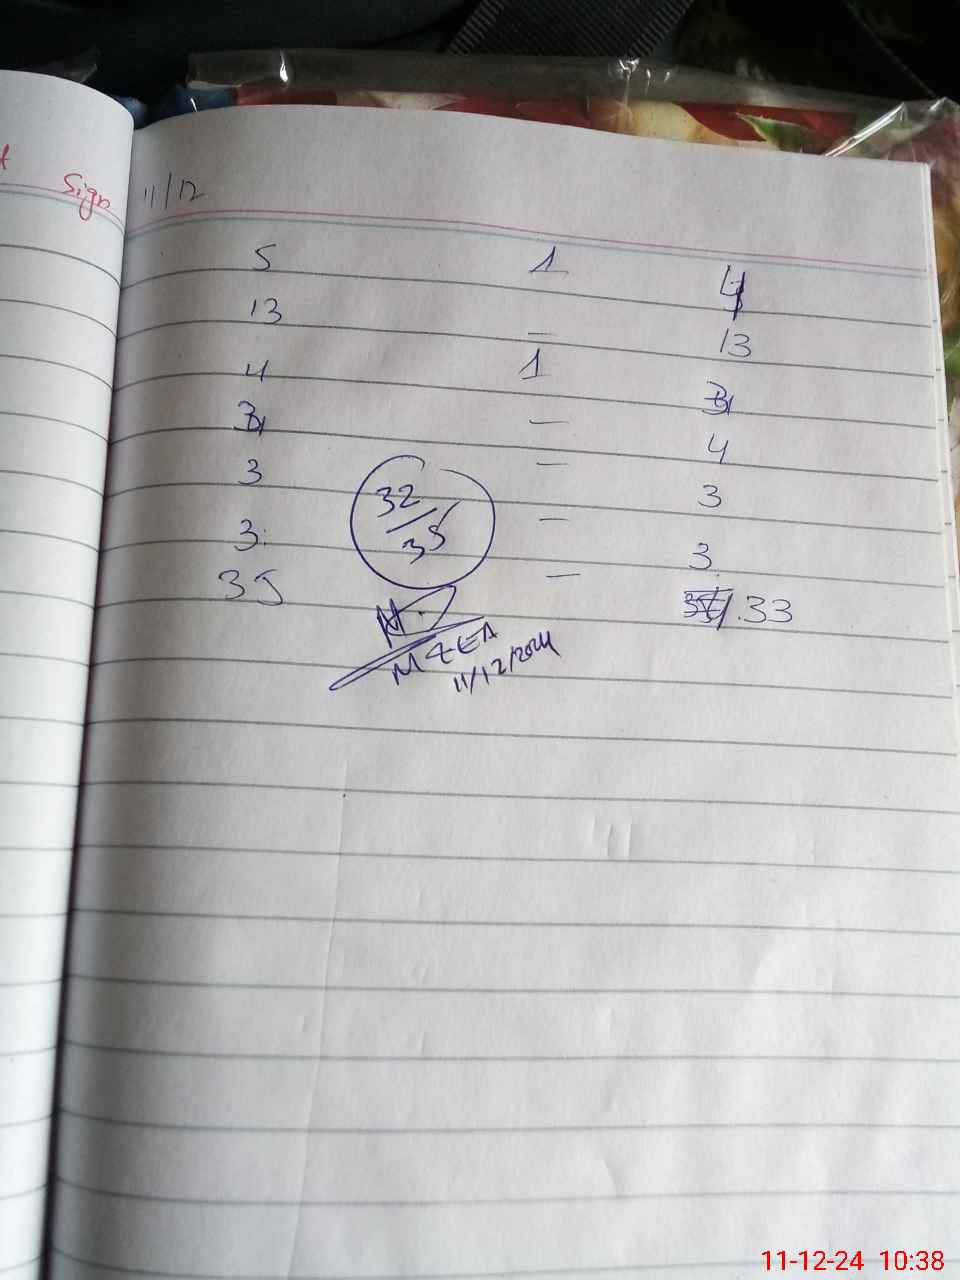 Sign
11/12
5 1 4
13 — 13
4 1 3
3 — 4
3 — 3
3 — 3
35 — 33
32/35
M&EA
11/12/2024
11-12-24 10:38